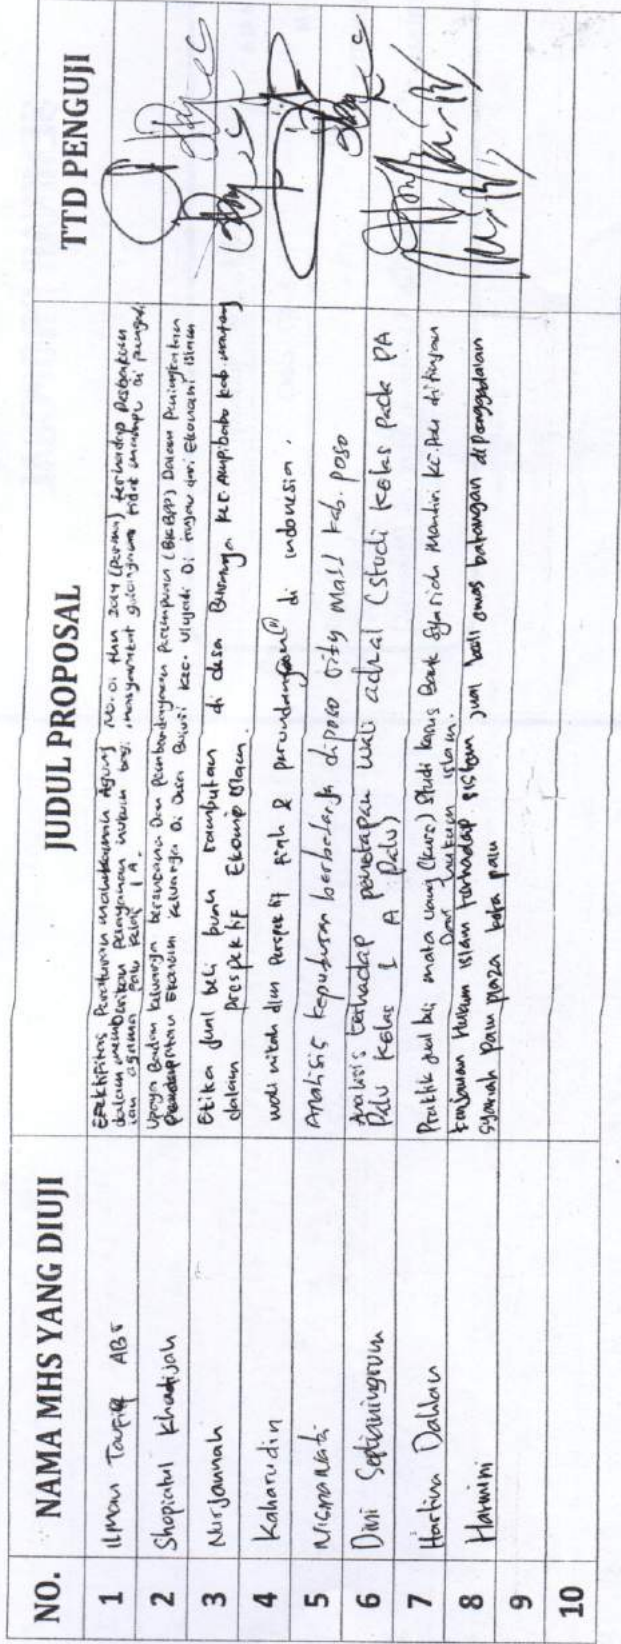 NO. NAMA MHS YANG DIUJI JUDUL PROPOSAL TTD PENGUJI
1 Ilman Taufiq ABS Efektifitas Peraturan Mahkamah Agung No. 01 thun 2014 (Perma) terhadap
dalam memberikan pelayanan hukum bagi masyarakat golongan tidak mampu di
agama Palu Kelas 1 A.
2 Shopiatul Khadijah Upaya Badan Keluarga berencana Dan Pemberdayaan Perempuan (BKBPP) Dalam Peningkatan
Pendapatan Ekonomi Keluarga Di Desa Kec. Ulujadi Di tinjau dari Ekonomi Islam
3 Nurjannah Etika Jual beli buah rambutan di desa Kec. Ampibabo kab.
dalam prespektif Islam.
4 Kaharudin wali nikah dlm Perspektif Fiqh & perundangan² di indonesia.
5 Nismanati Analisis keputusan berbelanja diposo city Mall kab. poso
6 Dini Septianingrum Analisis terhadap penetapan wali adhal (Studi Kelas pada PA
Palu Kelas 1 A Palu)
7 Hartina Dahlan Praktik jual beli mata uang (kurs) Studi kasus Bank Syariah Mandiri Kc. Palu di tinjau
Dari hukum islam.
8 Harmini Tinjauan Hukum islam terhadap sistem jual beli emas batangan dipenggadaian
syariah palu plaza kota palu
9
10